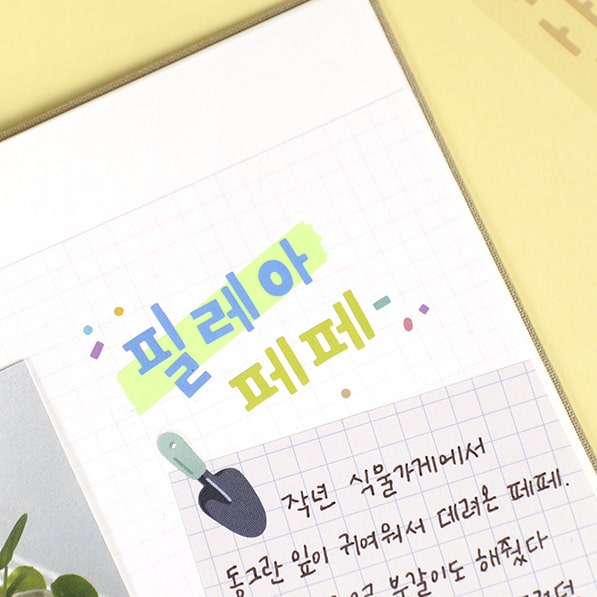 필레아
페페
작년 식물가게에서
동그란 잎이 귀여워서 데려온 페페.
분갈이도 해줬다